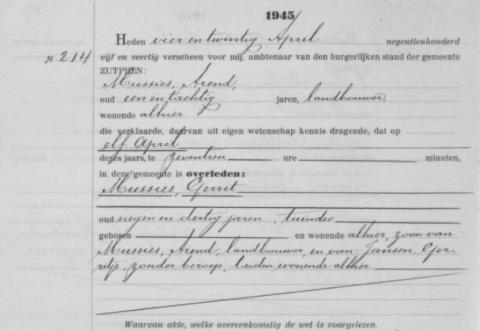 1945
Heden vier en twintig April negentienhonderd
x 214 vijf en veertig verscheen voor mij, ambtenaar van den burgerlijken stand der gemeente
ZUTPHEN:
Mussies, Arend,
oud een en tachtig jaren, landbouwer
wonende alhier
die verklaarde, daarvan uit eigen wetenschap kennis dragende, dat op
elf April
dezes jaars, te zeventien ure minuten,
in deze gemeente is overleden:
Mussies, Gerrit
oud negen en dertig jaren, tuinder
geboren en wonende alhier, zoon van
Mussies, Arend, landbouwer, en van Jansen, Ger-
ritje, zonder beroep, beiden wonende alhier
Waarvan akte, welke overeenkomstig de wet is voorgelezen